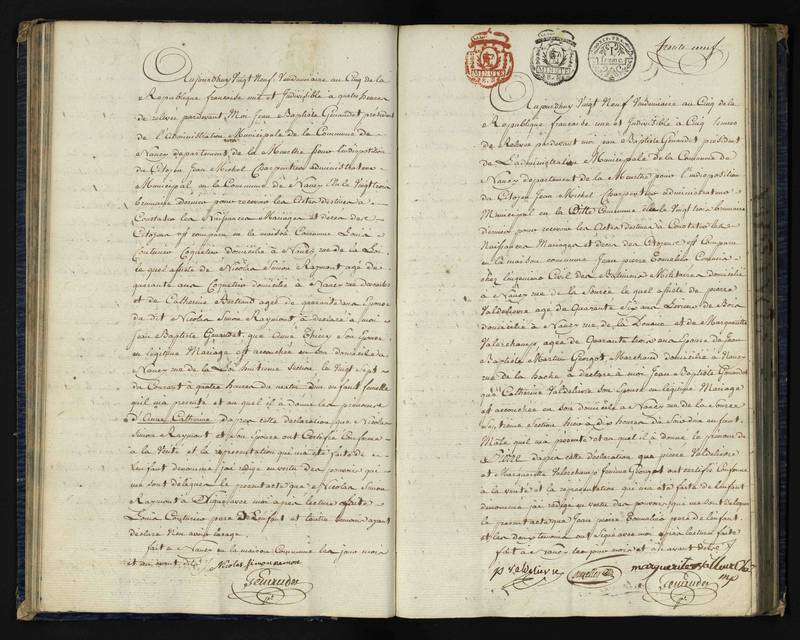 Aujourdhuy Vingt Neuf Vendemiaire au Cinq de la
République française une et Indivisible à quatre heures
de relevée pardevant Moi Jean Baptiste Géraudet président
de l'administration Municipale de la Commune de
Nancy département de la Meurthe pour l'indisposition
du Citoyen Jean Michel Charpentier administrateur
Municipal en la Commune de Nancy Elu le Vingt trois
brumaire Dernier pour recevoir les Actes destinés à
Constater les Naissances Mariages et décès des
Citoyens est comparu en la maison Commune Louis
Couturier Coquetier domicilié à Nancy rue de la Loi
lequel assisté de Nicolas Simon Raymont agé de
quarante ans Coquetier domicilié à Nancy rue
et de Catherine Bertrand agée de quarante ans Epouse
du dit Nicolas Simon Raymont a déclaré à moi
Jean Baptiste Géraudet, que Anne Thiery Son Epouse
en légitime Mariage est accouchée en son domicile à
Nancy rue de la Loi huitieme Section le Vingt Sept
du Courant à quatre heures du matin d'un enfant femelle
qu'il m'a présenté et auquel il a donné les prénoms
d'Anne Catherine dapres cette déclaration que Nicolas
Simon Raymont et Son Epouse ont Certifié Conforme
à la Vérité et la représentation qui m'a été faite de
l'enfant dénommé j'ai rédigé en vertu des pouvoirs qui
me sont délégués le présent acte que Nicolas Simon
Raymont a Signé avec moi après lecture faite
Louis Couturier père de l'Enfant et l'autre témoin ayant
déclaré n'en avoir l'usage.
fait à Nancy en la maison Commune les jour mois
et an avant dits Nicolas Simon remon
MINUTE
MINUTE
trente neuf
Aujourdhuy Vingt Neuf Vendemiaire au Cinq de la
République française une et Indivisible à Cinq heures
de Relevée pardevant moi Jean Baptiste Géraudet président
de L'administration Municipale de la Commune de
Nancy département de la Meurthe pour l'indisposition
du Citoyen Jean Michel Charpentier administrateur
Municipal en la ditte Commune élu le Vingt trois brumaire
dernier pour recevoir les Actes destinés à Constater les
Naissances Mariages et décès des Citoyens est Comparu
en la maison commune Jean pierre Commis
chez l'ingénieur Civil des Batimens Militaires domicilié
à Nancy rue de la Source lequel assisté de pierre
Valdelievre agé de Quarante Six ans de Bois
domicilié à Nancy rue de la Source et de Marguerite
agée de Quarante trois ans Epouse de Jean
Baptiste Martin Georgot Marchand domicilié à Nancy
rue de la hache a déclaré à moi Jean Baptiste Géraudet
que Catherine Valdelievre Son Epouse en légitime Mariage
est accouchée en son domicile à Nancy rue de la Source
Section heures du d'un enfant
Mâle quil m'a présenté et auquel il a donné le prénom de
Pierre dapres cette déclaration que pierre Valdelievre
et Marguerite femme Georgot ont certifié Conforme
à la vérité et la représentation qui m'a été faite de l'enfant
dénommé j'ai rédigé en vertu des pouvoirs qui me sont délégués
le présent acte que Jean pierre père de l'enfant
et les deux témoins ont Signé avec moi après lecture faite
fait à Nancy les jour mois et an avant dits
p valdelievre